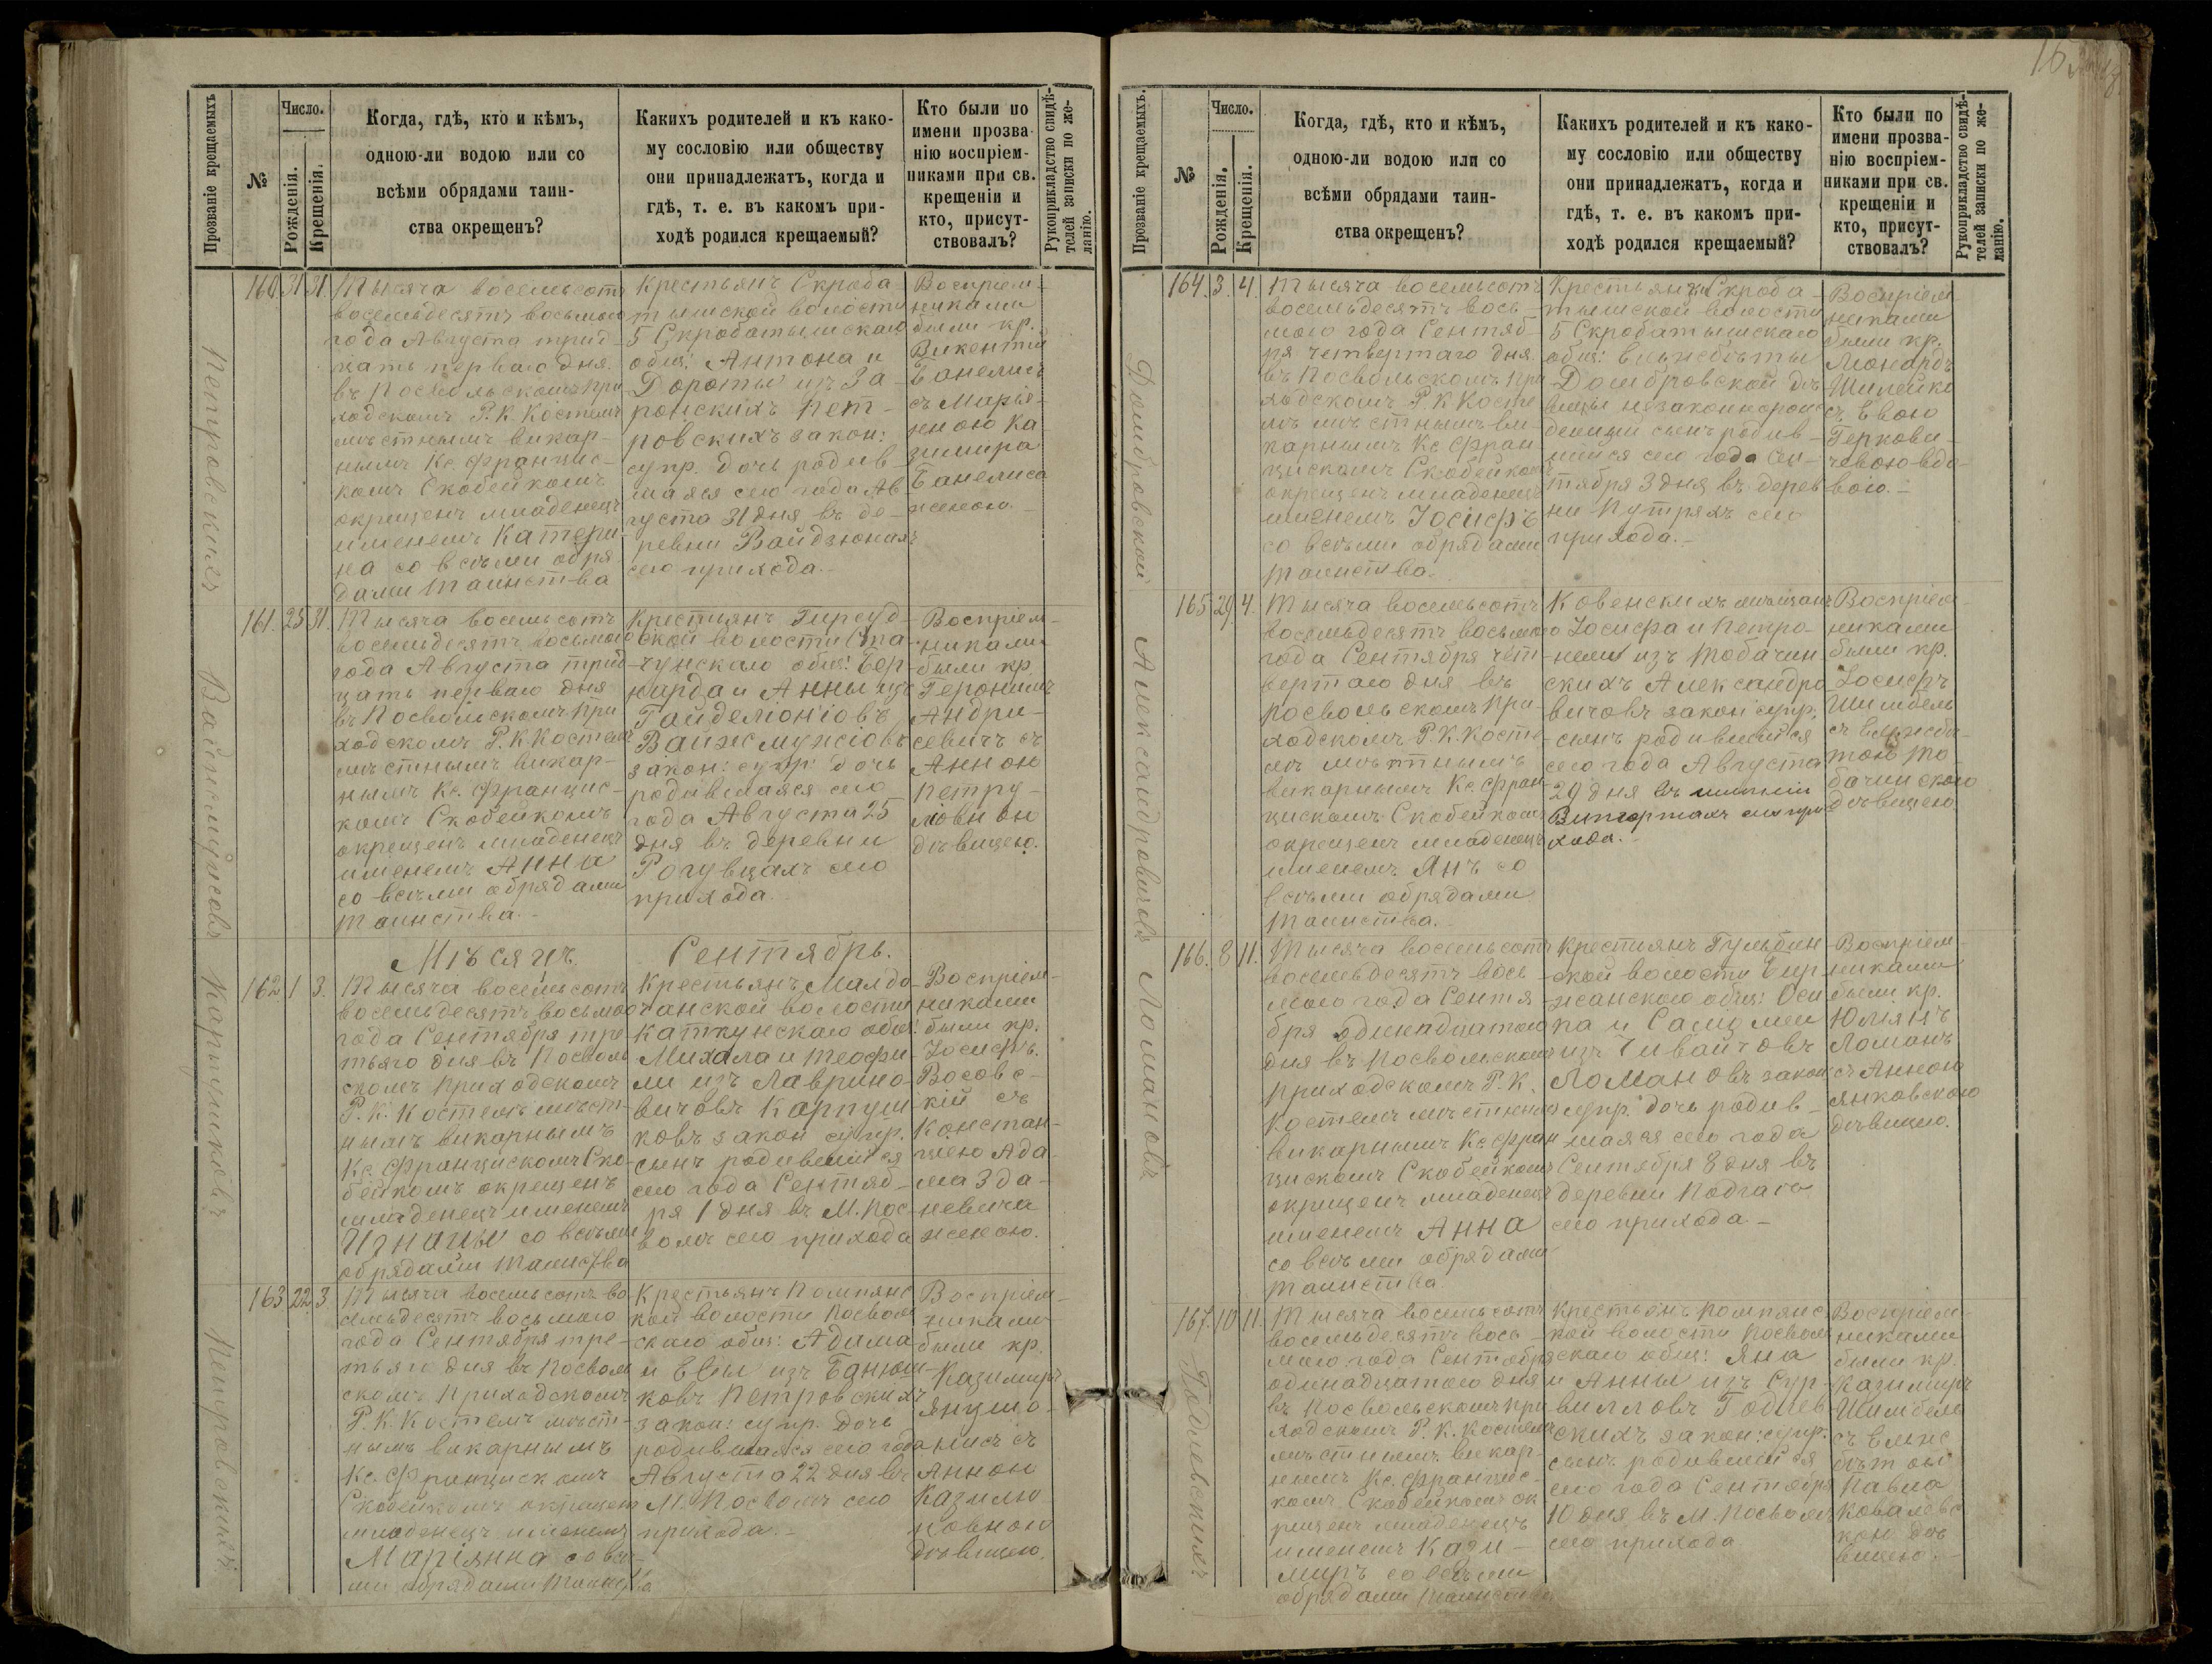 Прозваніе крещаемыхъ
№
Число.
Рожденія.
Крещенія.
Когда, гдѣ, кто и кѣмъ,
одною-ли водою или со
всѣми обрядами таин-
ства окрещенъ?
Какихъ родителей и къ како-
му сословію или обществу
они принадлежатъ, когда и
гдѣ, т. е. въ какомъ при-
ходѣ родился крещаемый?
Кто были по
имени прозва-
нію воспріем-
никами при св.
крещеніи и
кто, присут-
ствовалъ?
Рукоприкладство свидѣ-
телей записки по же-
ланію.
Петровскихъ
160. 31 31.
Тысяча восемьсотъ
восемьдесятъ восьмого
года Августа трид
цать перваго дня
въ Посвольскомъ при
ходскомъ Р. К Костелѣ
мѣстнымъ викар-
нымъ Кс. Францис-
комъ Скобейкомъ
окрещенъ младенецъ
именемъ Катери
на со всѣми обря
дами таинства
Крестьянъ Скроба
тышской волости
5 Скробатышскаго
общ: Антона и
Дороты изъ За
ронскихъ Пет-
ровскихъ закон:
супр. дочь родив
шаяся сего года Ав
густа 31 дня въ де-
ревни Вайдзюнахъ
сего прихода.
Воспріем-
никами
были кр.
Викентій
Банелисъ
съ Марья-
ною Ка
зимира
Банелиса
женою.
Вайжмужсовъ
161. 25 31.
Тысяча восемьсотъ
восемьдесятъ восьмого
года Августа трид
цать перваго дня
въ Посвольскомъ при
ходскомъ Р. К. Костелѣ
мѣстнымъ викар-
нымъ Кс. Францис-
комъ Скобейкомъ
окрещенъ младенецъ
именемъ Анна
со всѣми обрядами
таинства.
Крестьянъ Гирсуд-
ской волости Ста-
чунскаго общ: Бер-
нарда и Анны изъ
Гайделіоніовъ
Вайжмужсіовъ
закон: супр: дочь
родившаяся сего
года Августа 25
дня въ деревни
Рогувцахъ сего
прихода.
Воспріем-
никами
были кр.
Геронимъ
Андри-
севичъ съ
Анною
Петру-
ловною
дѣвицею.
Мѣсяцъ Сентябрь.
Карпушковъ
162 1 3.
Тысяча восемьсотъ
восемьдесятъ восьмого
года Сентября тре
тьяго дня въ Посволь
скомъ приходскомъ
Р. К. Костелѣ мѣст-
нымъ викарнымъ
Кс. Францискомъ Ско-
бейкомъ окрещенъ
младенецъ именемъ
Игнацы со всѣми
обрядами таинства
Крестьянъ Малдо
чанской волости
Каткунскаго общ:
Михала и Теофи
ли изъ Лаврино-
вичовъ Карпуш
ковъ закон супр.
сынъ родившійся
сего года Сентяб-
ря 1 дня въ М. Пос-
волѣ сего прихода
Воспріем-
никами
были кр.
Іосифъ
Восовс-
кій съ
Констан-
цею Ада
ма Зда-
невича
женою.
Петровскихъ
163 22. 3.
Тысяча восемьсотъ во
семьдесятъ восьмого
года Сентября тре-
тьяго дня въ Посволь
скомъ приходскомъ
Р. К. Костелѣ мѣст-
нымъ викарнымъ
Кс. Францискомъ
Скобейкомъ окрещенъ
младенецъ именемъ
Маріянна со всѣ-
ми обрядами таинства
Крестьянъ Помпянс
кой волости Посволь
скаго общ: Адама
и Евы изъ Банюш-
ковъ Петровскихъ
закон: супр. дочь
родившаяся сего года
Августа 22 дня въ
М. Посволѣ сего
прихода.
Воспріем-
никами
были кр.
Казимиръ
Янушо-
нисъ съ
Анною
Казилю
новною
дѣвицею.
Прозваніе крещаемыхъ.
№
Число.
Рожденія.
Крещенія.
Когда, гдѣ, кто и кѣмъ,
одною-ли водою или со
всѣми обрядами таин-
ства окрещенъ?
Какихъ родителей и къ како-
му сословію или обществу
они принадлежатъ, когда и
гдѣ, т. е. въ какомъ при-
ходѣ родился крещаемый?
Кто были по
имени прозва-
нію воспріем-
никами при св.
крещеніи и
кто, присут-
ствовалъ?
Рукоприкладство свидѣ-
телей записки по же-
ланію.
Домбровской
164. 3. 4.
Тысяча восемьсотъ
восемьдесятъ вось
мого года Сентяб-
ря четвертаго дня.
въ Посвольскомъ при
ходскомъ Р К Косте
лѣ мѣстнымъ ви-
карнымъ Кс Фран
цискомъ Скобейкомъ
окрещенъ младенецъ
именемъ Іосифъ
со всѣми обрядами
таинства.
Крестьянки Скроба
тышской волости
5 Скробатышскаго
общ: Ельжбѣты
Домбровской дѣ
вицы незаконнорож
денный сынъ родив-
шійся сего года Сен-
тября 3 дня въ дерев
ни Путряхъ сего
прихода.
Воспріем
никами
были кр.
Леонардъ
Шилейко
съ Евою
Геркови-
чевою вдо
вою.
Александровичовъ
165 29. 4.
Тысяча восемьсотъ
восемьдесятъ восьмого
года Сентября чет-
вертаго дня въ
Посвольскомъ при-
ходскомъ Р. К. Косте
лѣ мѣстнымъ
викарнымъ Кс Фран
цискомъ Скобейкомъ
окрещенъ младенецъ
именемъ Янъ со
всѣми обрядами
таинства.
Ковенскихъ мѣщанъ
Іосифа и Петро-
нели изъ Тобачин
скихъ Александро
вичовъ закон супр.
сынъ родившійся
сего года Августа
29 дня въ имѣніи
сего при
хода.
Воспріем
никами
были кр.
Іосифъ
Шимбель
съ Ельжбѣ
тою То
бачинскою
дѣвицею
Ломановъ
166. 8 11.
Тысяча восемьсотъ
восемьдесятъ вось
мого года Сентя
бря одинадцатого
дня въ Посвольскомъ
приходскомъ Р. К.
Костелѣ мѣстнымъ
викарнымъ Кс Фран
цискомъ Скобейкомъ
окрещенъ младенецъ
именемъ Анна
со всѣми обрядами
таинства
Крестьянъ Гульбин
ской волости Бир
жанскаго общ: Оси
па и Саломеи
изъ Чивайчовъ
Ломановъ закон
супр. дочь родив-
шаяся сего года
Сентября 8 дня въ
деревни Подгаю
сего прихода.
Воспріем
никами
были кр.
Юліянъ
Ломанъ
съ Анною
Янковскою
дѣвицею.
Годлевскихъ
167. 10 11.
Тысяча восемьсотъ
восемьдесятъ вось
мого года Сентября
одинадцатого дня
въ Посвольскомъ при
ходскомъ Р. К. Костелѣ
мѣстнымъ викар-
нымъ Кс. Францис-
комъ Скобейкомъ ок
рещенъ младенецъ
именемъ Кази-
миръ со всѣми
обрядами таинства
Крестьянъ Помпянс
кой волости Посволь
скаго общ: Яна
и Анны изъ Сур-
вилловъ Годлев
скихъ закон: супр.
сынъ родившійся
сего года Сентября
10 дня въ М. Посволѣ
сего прихода
Воспріем-
никами
были кр.
Казимиръ
Шимбель
съ Ельж
бѣтою
Павла
Ковалевс
кою дѣ
вицею.